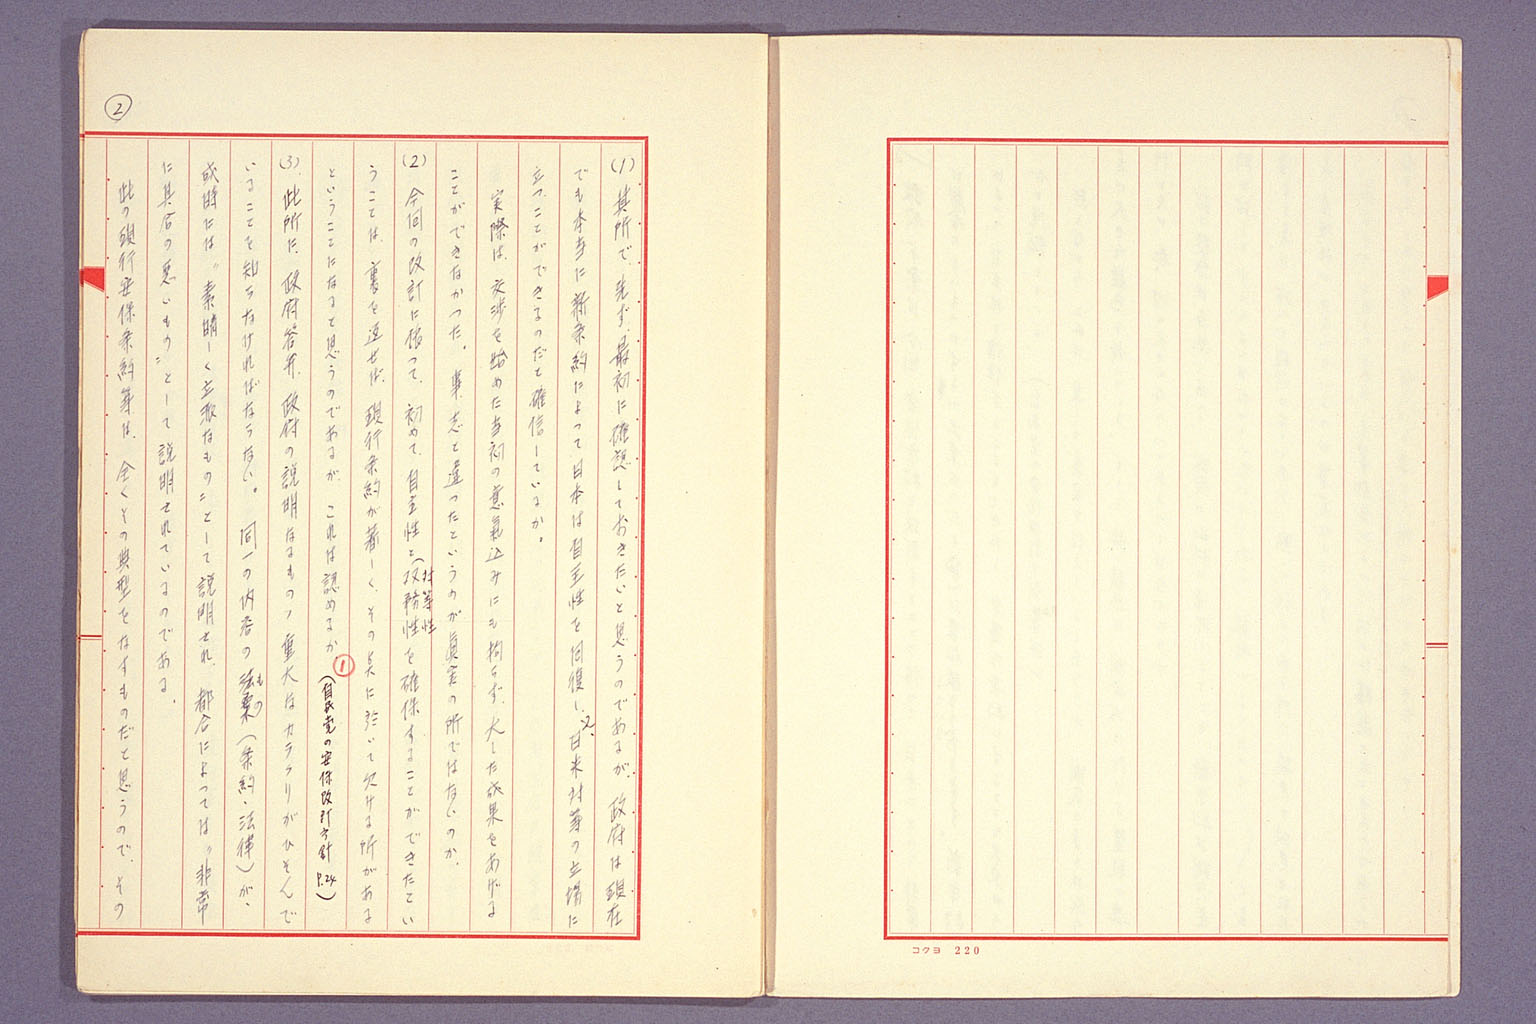 ②
(1) 其所で、先ず、最初に確認しておきたいと思うのであるが、政府は現在
でも本当に新条約によって日本は自主性を回復し、又、日米対等の立場に
立つことができるのだと確信しているか。
実際は、交渉を始めた当初の意気込みにも拘らず、大した成果をあげる
ことができなかった。事、志と違ったというのが眞実の所ではないのか。
(2) 今回の改訂に依って、初めて、自主性と(双務性 対等性を確保することができたとい
うことは、裏を返せば、現行条約が著しく、その点に於いて欠ける所がある
ということになると思うのであるが、これは認めるか ① (自民党の安保改訂方針 P.24)
(3) 此所に、政府答弁、政府の説明なるものゝ重大なカラクリがひそんで
いることを知らなければならない。同一の内容の法案もの(条約・法律)が、
成時には〝素晴しく立派なもの〟として説明され、都合によっては〝非常
に具合の悪いもの〟として説明されているのである。
此の現行安保条約等は、全くその典型をなすものだと思うので、その
コクヨ 220